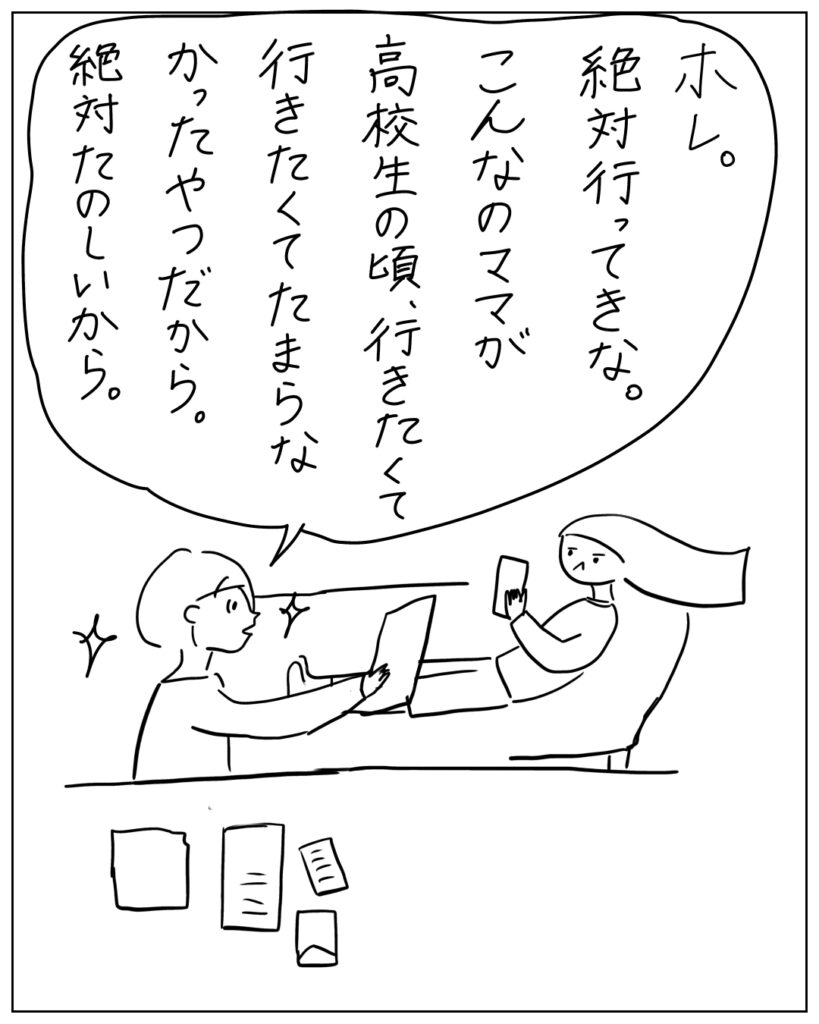 ホレ。
絶対行ってきな。
こんなのママが
高校生の頃、行きたくて
行きたくてたまらな
かったやつだから。
絶対たのしいから。